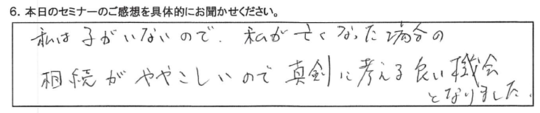 6. 本日のセミナーのご感想を具体的にお聞かせください。
私は子がいないので、私が亡くなった場合の
相続がややこしいので真剣に考える良い機会
となりました。